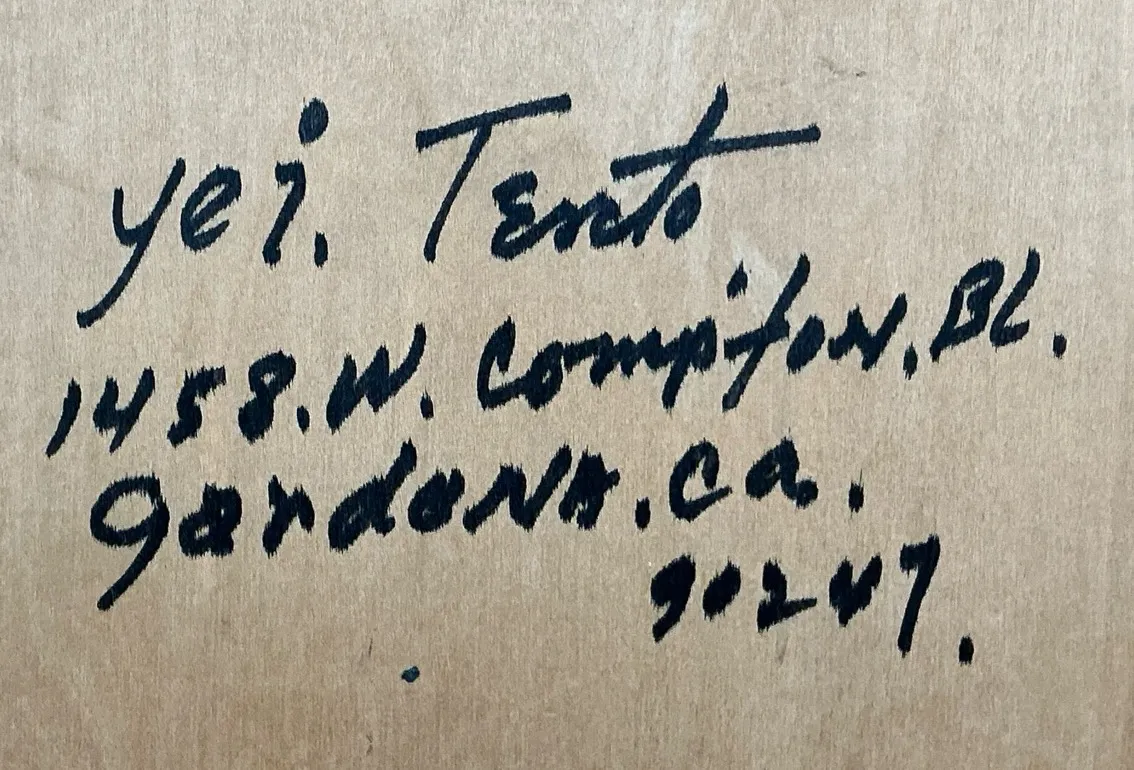 yei. Tento
1458. W. Compton. Bl.
gardona. ca.
90247.